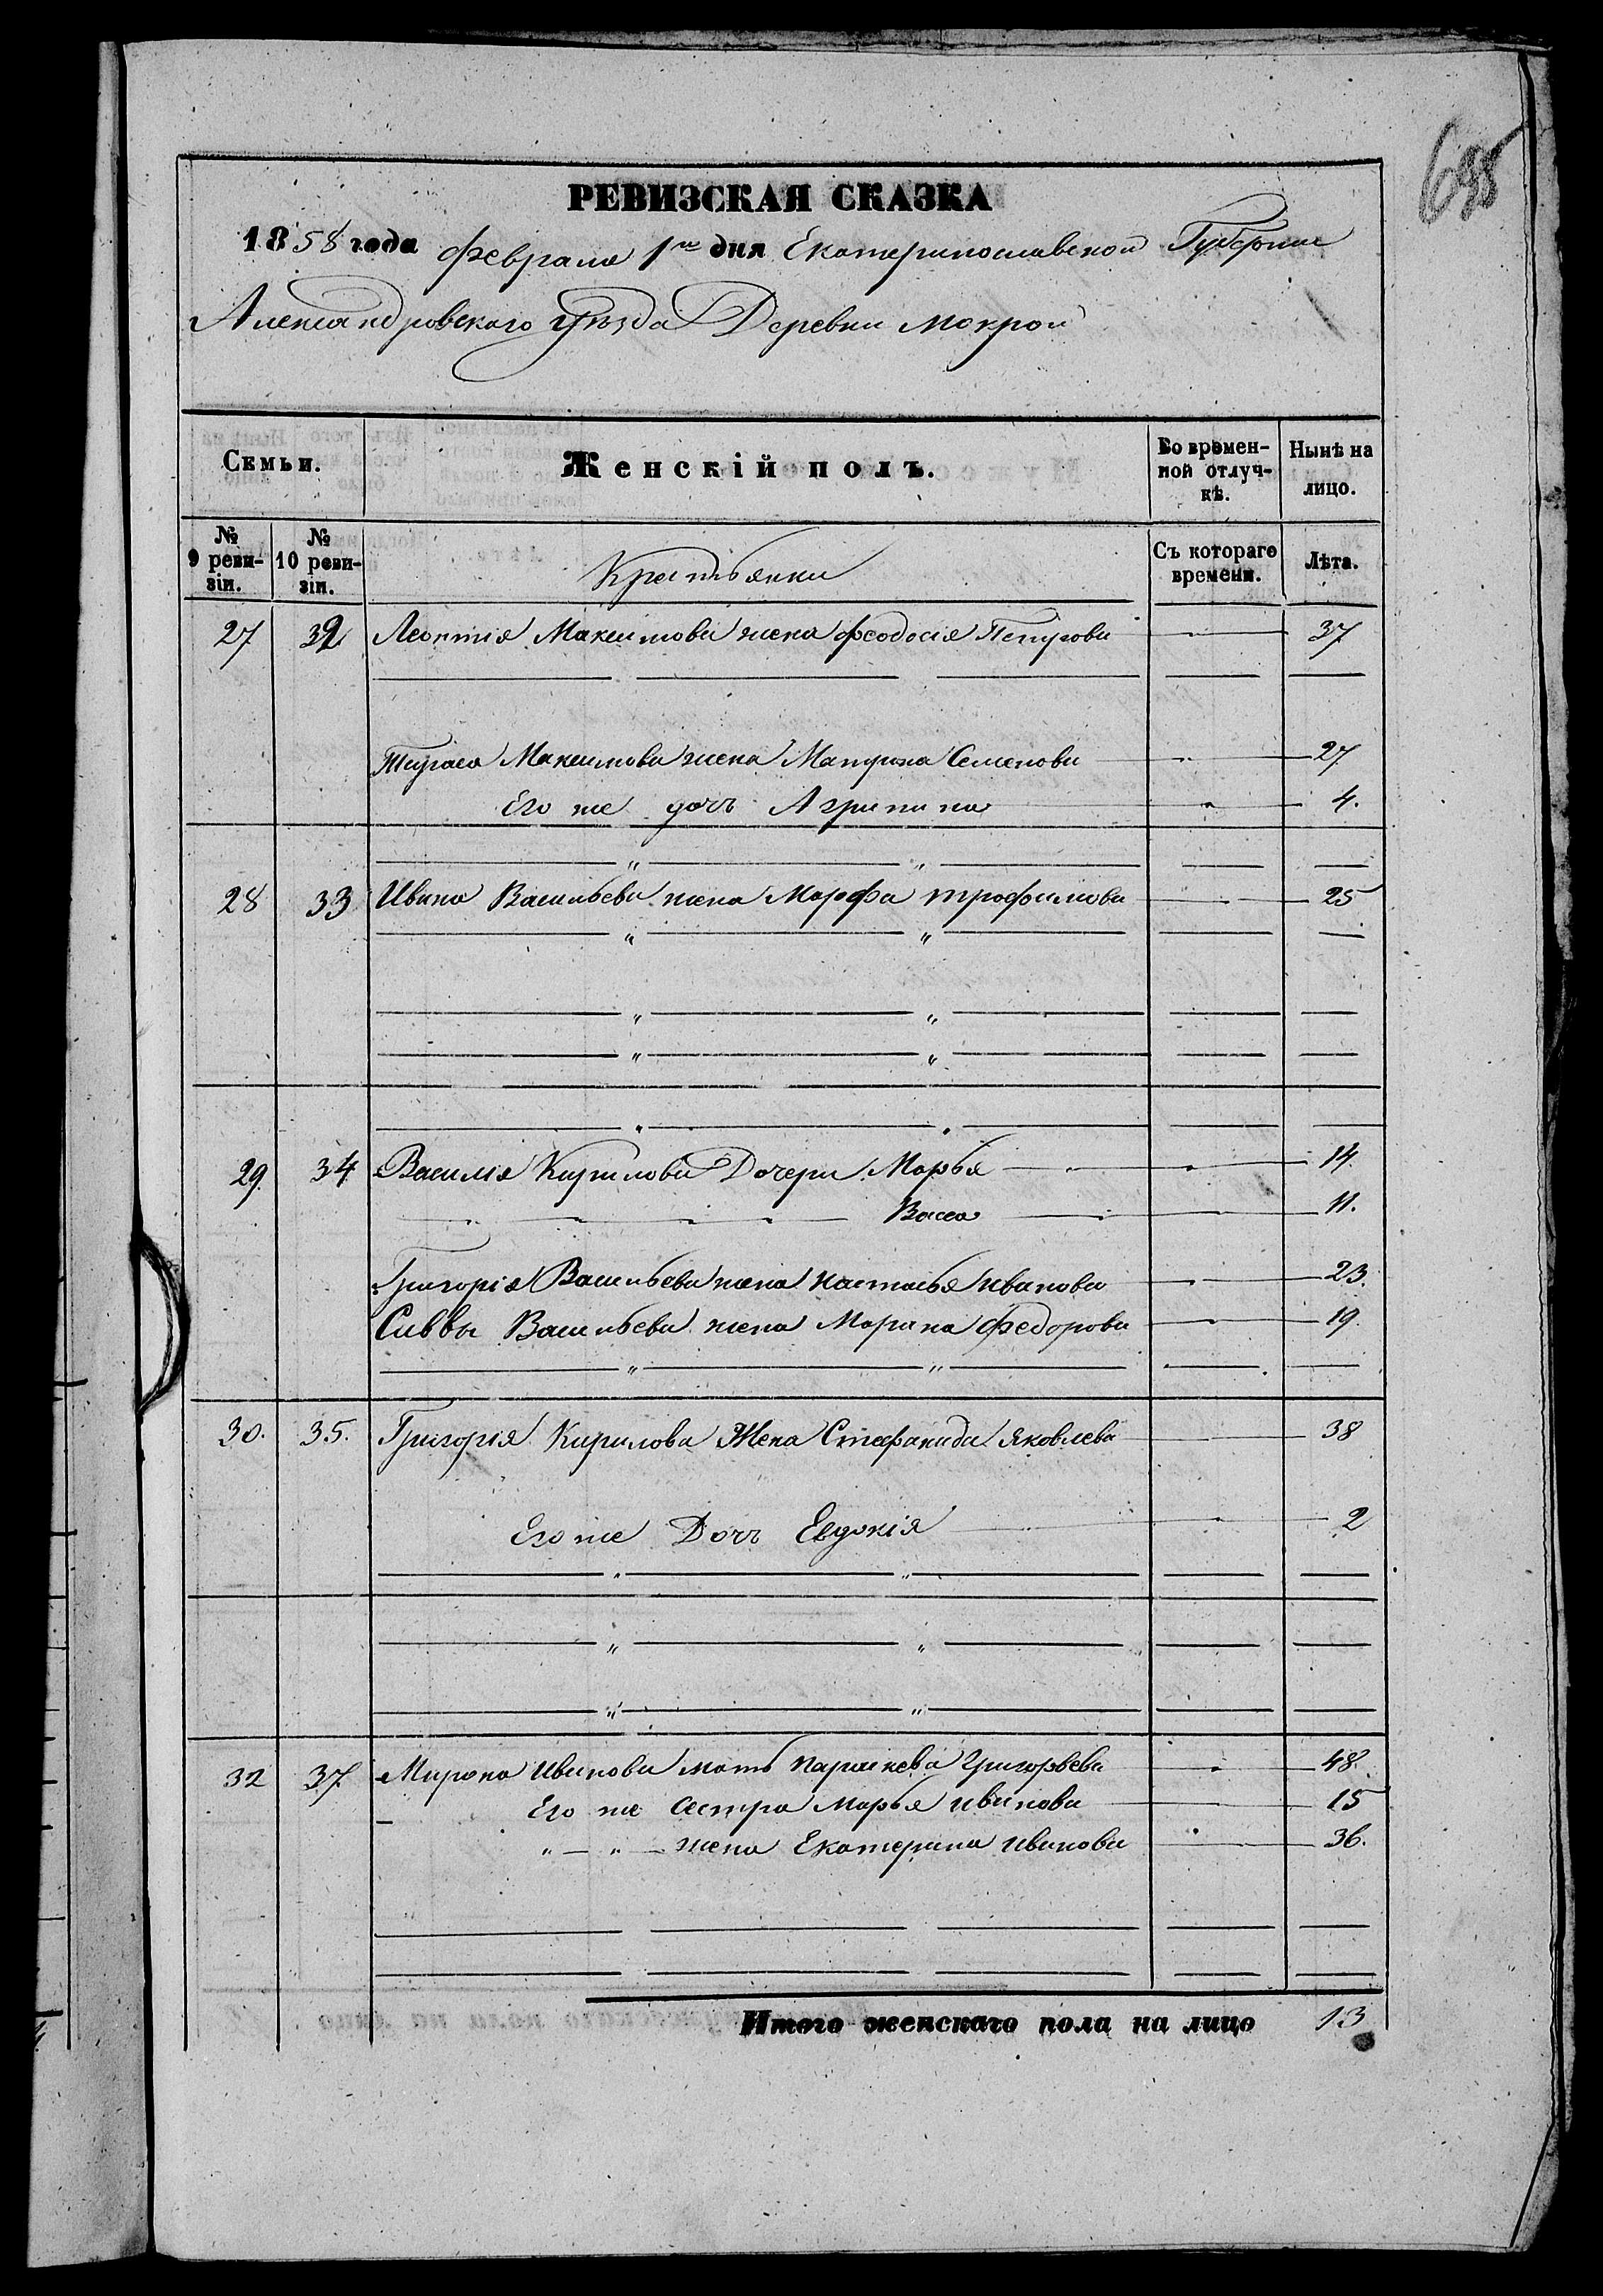 695
РЕВИЗСКАЯ СКАЗКА
1858 года февраля 1го дня Екатеринославской Губернии
Александровского Уѣзда Деревни Мокрой
Семьи. Женскій полъ. Во времен-ной отлуч-кѣ. Нынѣ на лицо.
№ 9 реви-зіи. № 10 реви-зіи. Крестьянки Съ котораго времени. Лѣта.
27 32 Леонтія Максимова жена Феодосія Петрова 37
Тараса Максимова жена Матрона Семенова 27
Его же дочь Агрипина 4.
28 33 Ивана Васильева жена Марфа трофимова 25
29. 34 Василія Кирилова Дочери Марья 14.
Васса 11.
Григорія Васильева жена настасья иванова 23.
Саввы Васильева жена Марина Федорова 19.
30. 35. Григорія Кирилова Жена Стефанида Яковлева 38
Его же Дочь Евдокія 2
32 37. Мирона Иванова мать параскева Григорьева 48.
Его же сестра Марья иванова 15
" — " — жена Екатерина иванова 36.
Итого женскаго пола на лицо 13